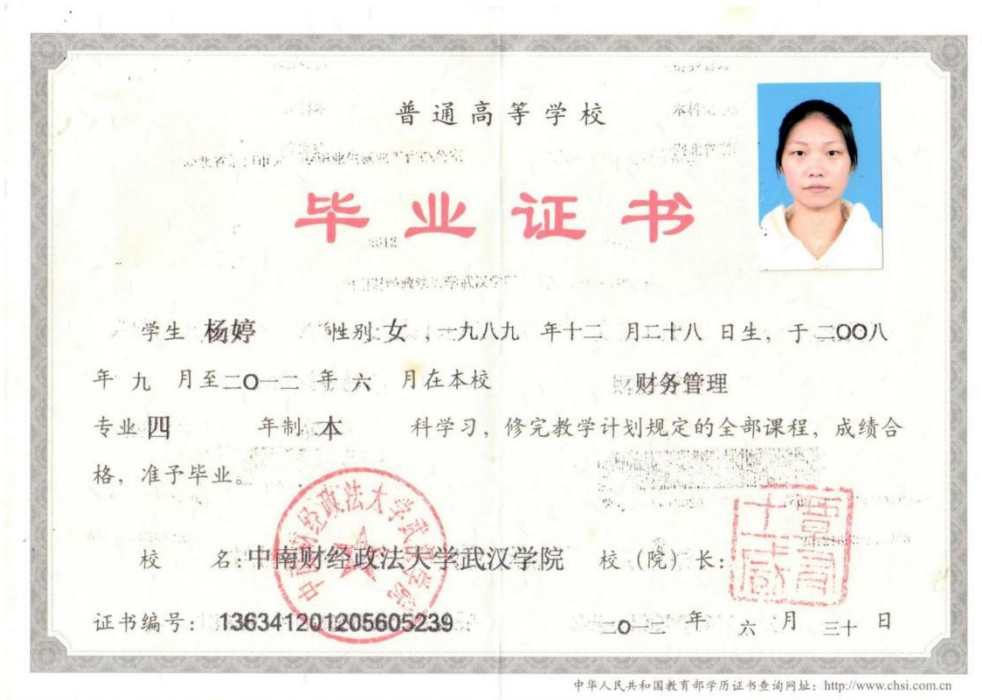 普通高等学校
毕业证书
2012
学生 杨婷 性别:女,一九八九 年十二 月二十八 日生,于二OO八
年 九 月至二O一二 年 六 月在本校 财务管理
专业 四 年制 本 科学习,修完教学计划规定的全部课程,成绩合
格,准予毕业。
中南财经政法大学武汉学院
校 名:中南财经政法大学武汉学院 校(院)长:
证书编号:136341201205605239 二O一二 年 六 月 三十 日
中华人民共和国教育部学历证书查询网址:http://www.chsi.com.cn